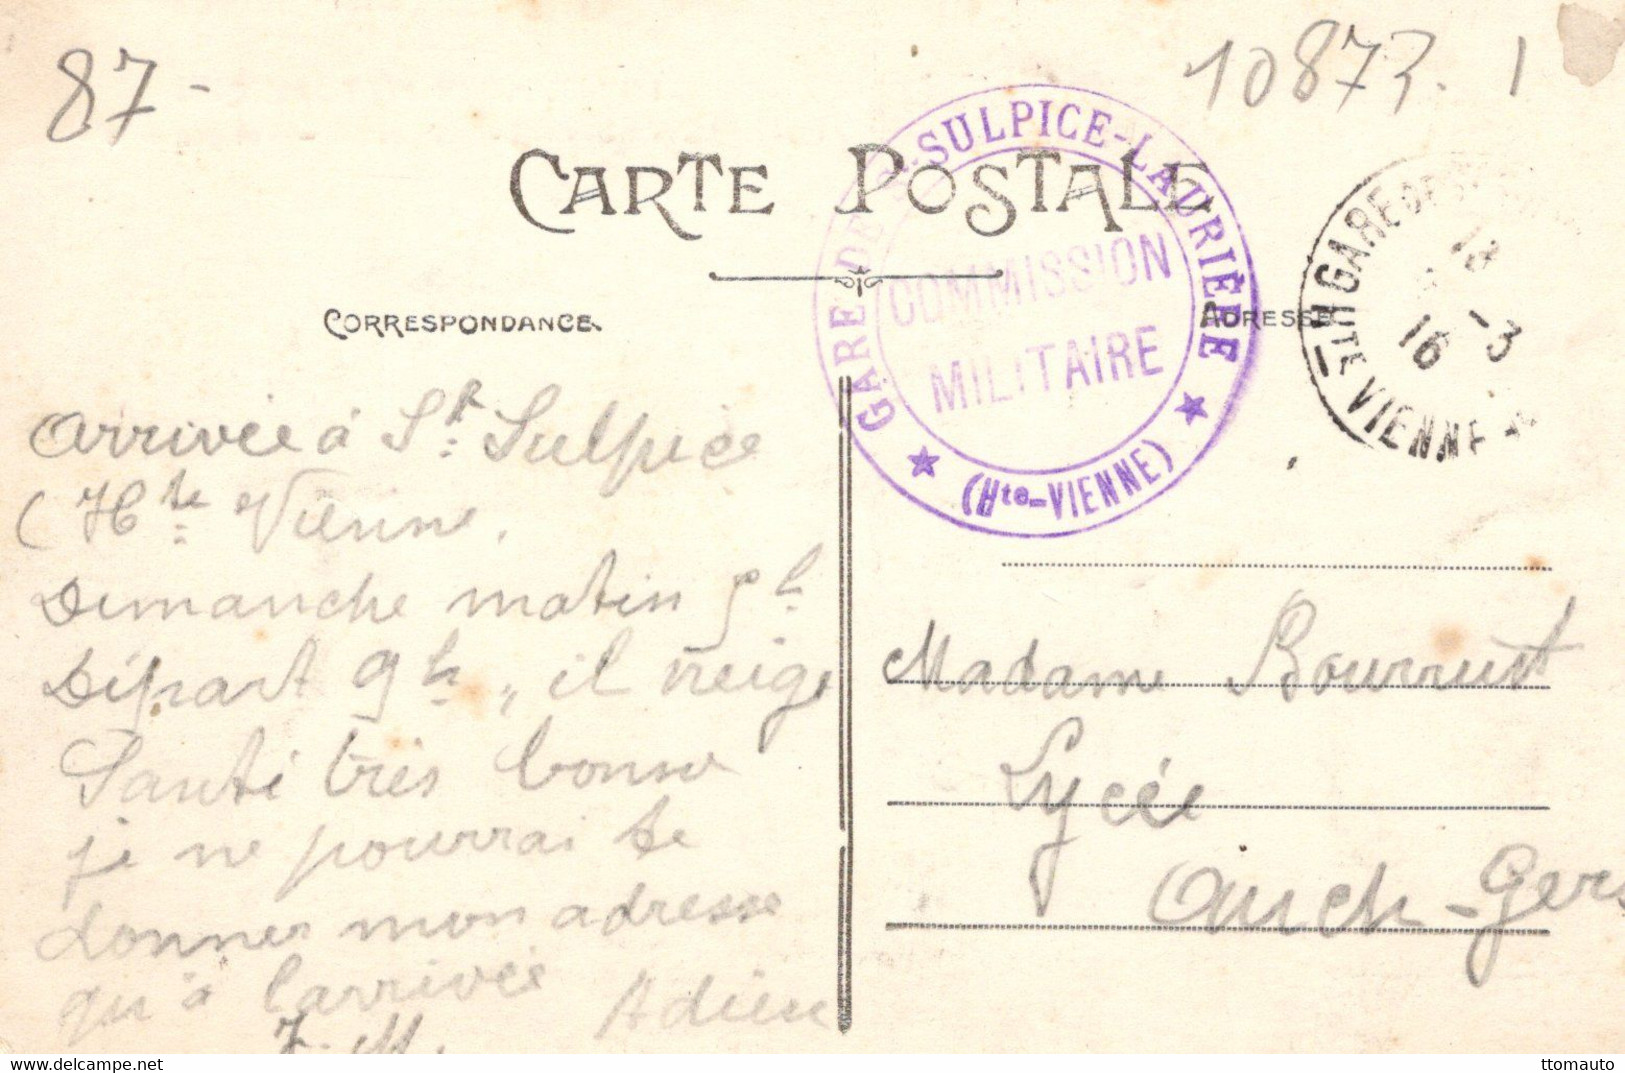 87-
10873. 1
CARTE POSTALE
CORRESPONDANCE
ADRESSE
GARE DE St-SULPICE-LAURIÈRE
COMMISSION
MILITAIRE
★ (Hte-VIENNE) ★
GARE DE
Hte VIENNE
18
-3
16
arrivée à St. Sulpice
(Hte Vienne.
Dimanche matin 5h
Départ 9h, il neige
Santé très bonne
je ne pourrai te
donner mon adresse
qu'à l'arrivée Adieu
J. M.
Madame Bourrust
Lycée
Auch - Gers
ttomauto